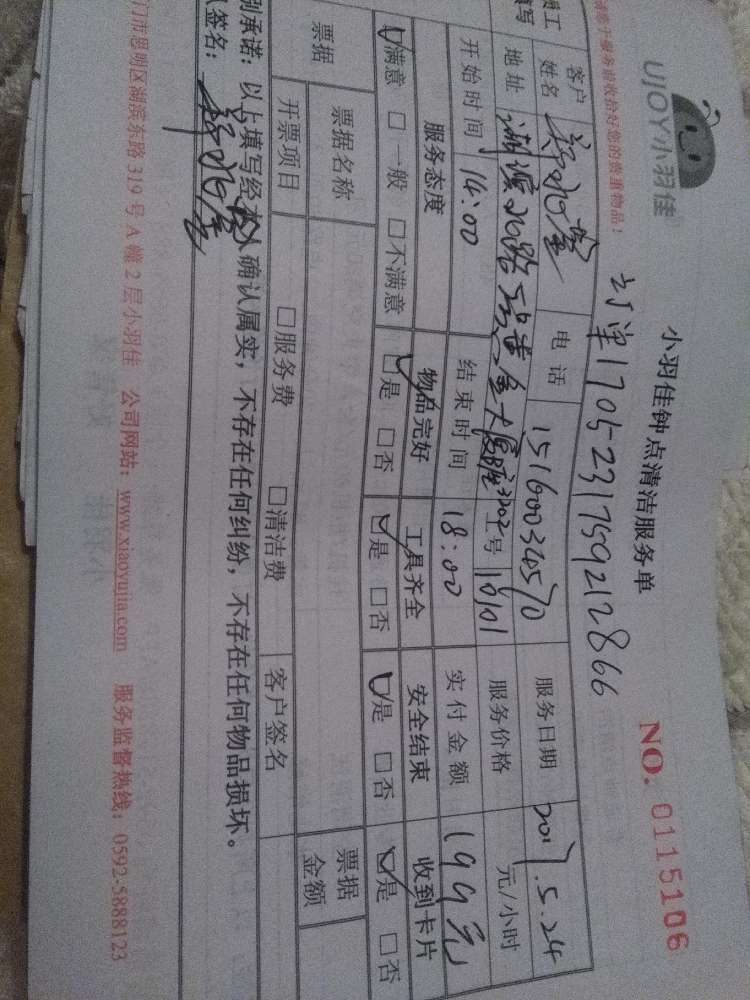 UJOY小羽佳
小羽佳钟点清洁服务单
NO. 0115106
服务前收拾好您的贵重物品！
订单1705231759212866
员工填写
客户姓名 电话 15160034570 服务日期 2017.5.24
地址 工号 10101 服务价格 元/小时
开始时间 14:00 结束时间 18:00 实付金额 199元
服务态度 物品完好 工具齐全 安全结束 收到卡片
☑满意 □一般 □不满意 ☑是 □否 ☑是 □否 ☑是 □否 ☑是 □否
票据 票据名称 票据金额
开票项目 □服务费 □清洁费 客户签名
别承诺：以上填写经本人确认属实，不存在任何纠纷，不存在任何物品损坏。
签名：
门市思明区湖滨东路319号A幢2层小羽佳 公司网站：www.xiaoyujia.com 服务监督热线：0592-5888123